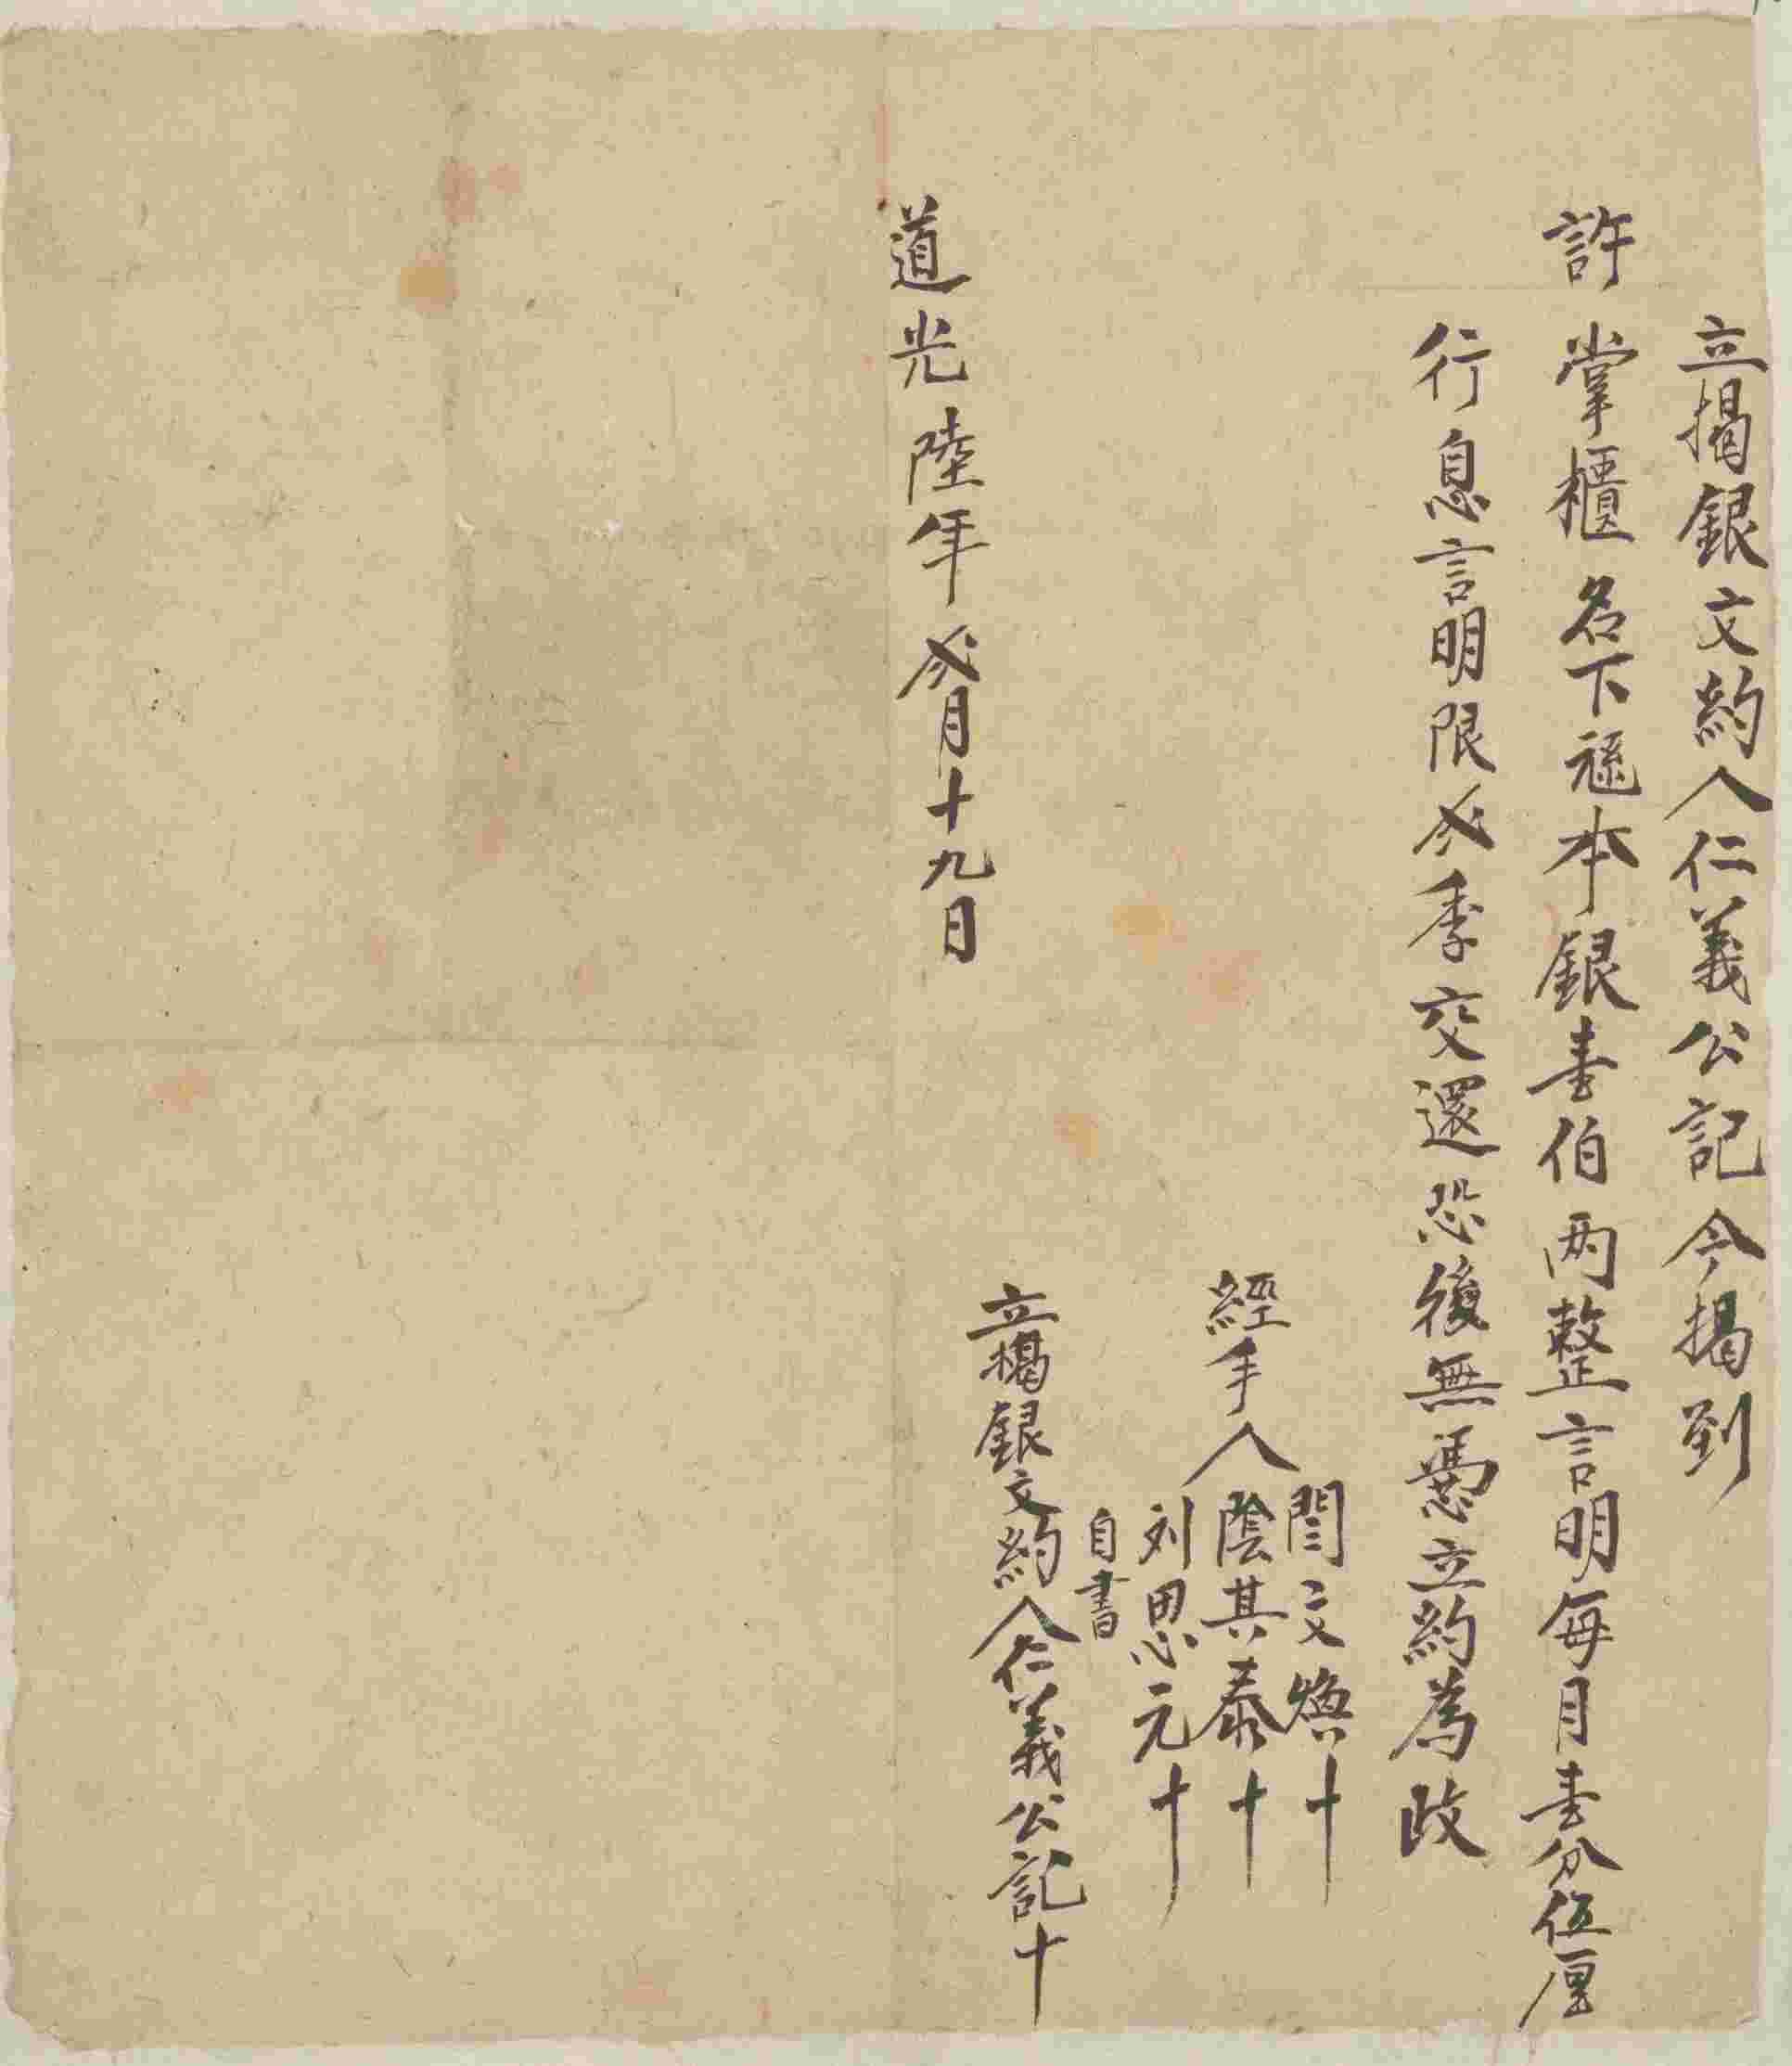 立揭銀文約人仁義公記今揭到
許掌櫃名下本銀壹伯两整言明每月壹分伍厘
行息言明限叁季交還恐後無憑立約為政
閆文煥十
經手人陰其泰十
刘思元十
自書
立揭銀文約人仁義公記十
道光陸年叁月十九日